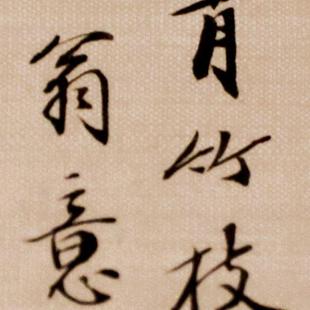 竹枝
翁意